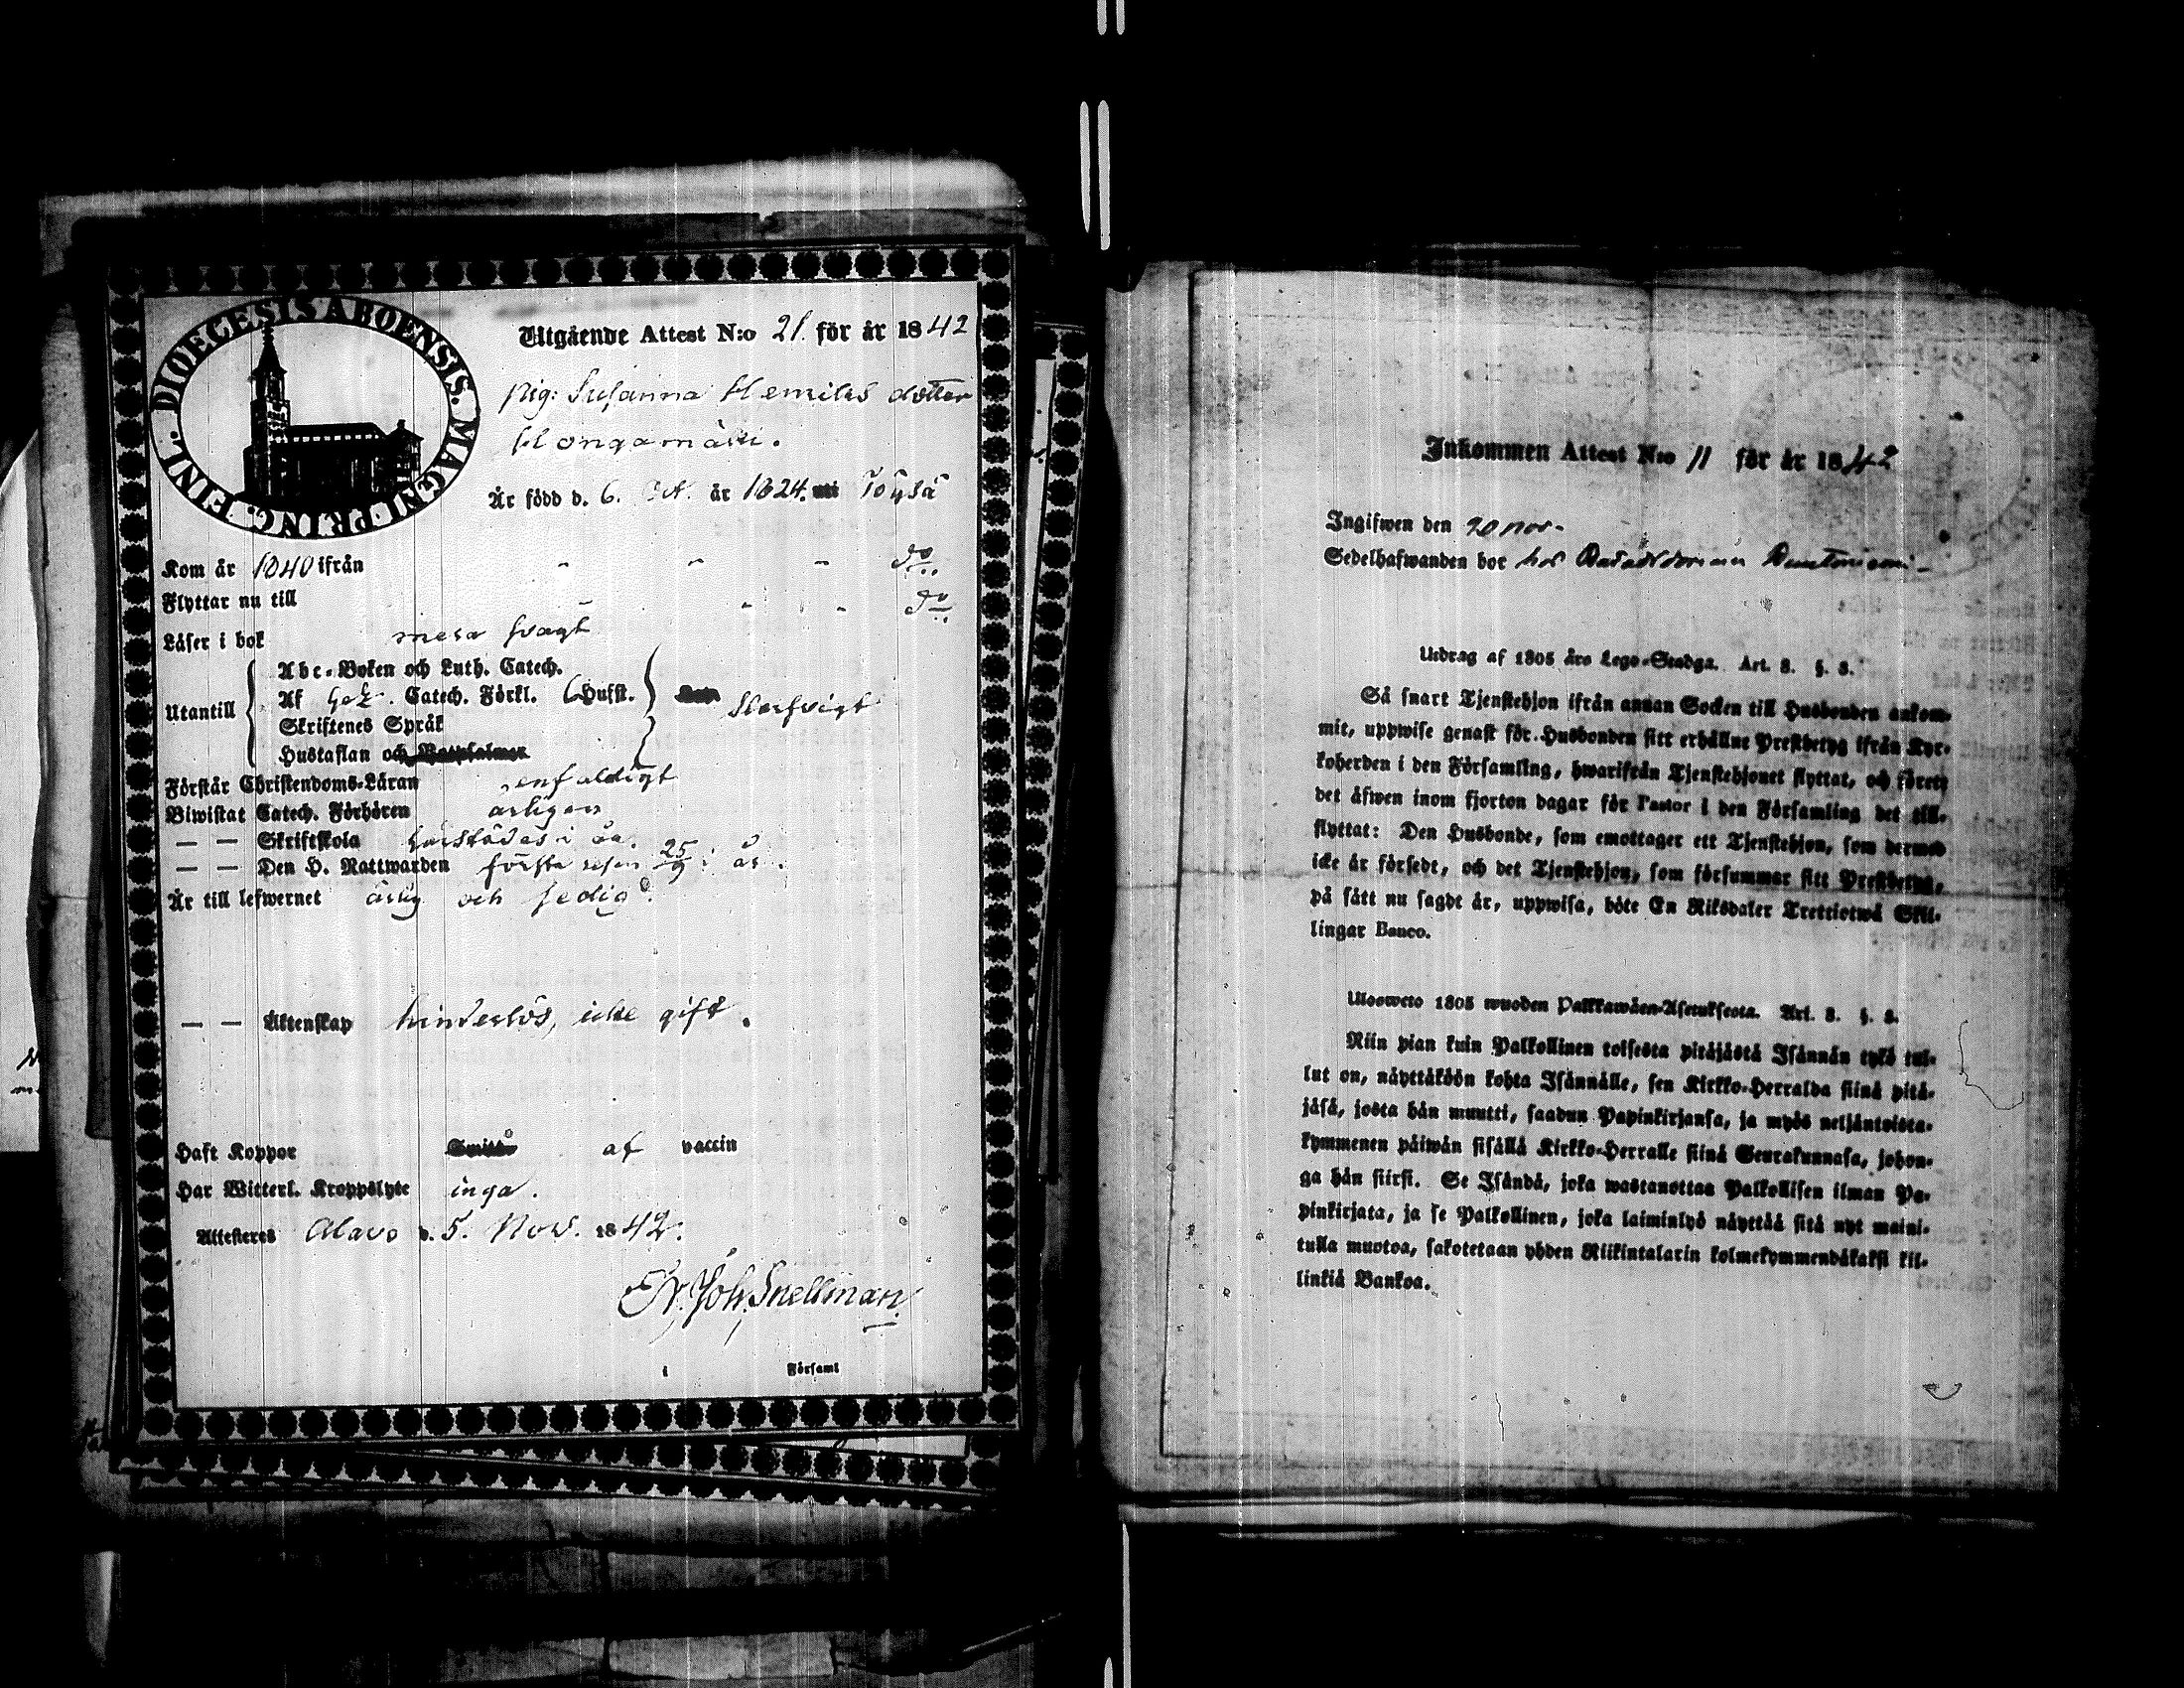 DIOECESIS ABOENSIS. MAGNI PRINC. FINL.
Utgående Attest N:o 21. för år 1842
pig: Susanna Hemriks dotter
Hongamäki.
Är född d. 6. Oct. år 1824. uti Töysä
Kom år 1840 ifrån " " " do
Flyttar nu till " " " do
Läser i bok mera svagt
Utantill
Abc-Boken och Luth. Catech.
Af Catech. Förkl. 6 Hufst.
Skriftenes Språk
Hustaflan och Botpsalmer
slarfvigt
Förstår Christendoms-Läran enfaldigt
Biwistat Catech. Förhören årligen
— — Skriftskola härstädes i år.
— — Den H. Nattwarden första resan 25/9 i år.
Är till lefwernet ärlig och sedig.
— — Äktenskap hinderlös, icke gift.
Haft Koppor af vaccin
Har Witterl. Kroppslyte inga.
Attesteras Alavo d. 5. Nov. 1842.
Joh. Snellman
i Församl
Inkommen Attest N:o 11 för år 1842
Ingifwen den 20 nov.
Sedelhafwanden bor hos
Utdrag af 1805 års Lego-Stadga. Art. 8. §. 3.
Så snart Tjenstehjon ifrån annan Socken till Husbonden ankom-
mit, uppwise genast för Husbonden sitt erhållne Prestbetyg ifrån Kyr-
koherden i den Församling, hwarifrån Tjenstehjonet flyttat, och förete
det äfwen inom fjorton dagar för Pastor i den Församling det till-
flyttat: Den Husbonde, som emottager ett Tjenstehjon, som dermed
icke är försedt, och det Tjenstehjon, som försummar sitt Prestbetyg,
på sätt nu sagdt är, uppwisa, böte En Riksdaler Trettiotwå Skil-
lingar Banco.
Ulosweto 1805 wuoden Palkkawäen-Asetuksesta. Art. 8. §. 3.
Niin pian kuin Palkollinen toisesta pitäjästä Isännän tykö tul-
lut on, näyttäköön kohta Isännälle, sen Kirkko-Herralda siinä pitä-
jäsä, josta hän muutti, saadun Papinkirjansa, ja myös neljäntoista-
kymmenen päiwän sisällä Kirkko-Herralle siinä Seurakunnasa, johon-
ga hän siirsi. Se Isändä, joka wastanottaa Palkollisen ilman Pa-
pinkirjata, ja se Palkollinen, joka laiminlyö näyttää sitä nyt maini-
tulla muotoa, sakotetaan yhden Riikintalarin kolmekymmendäkaksi kil-
linkiä Bankoa.